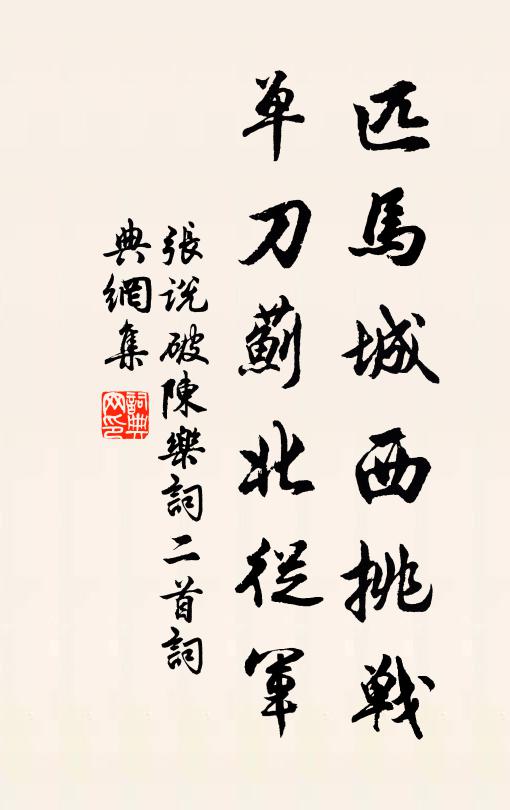 匹馬城西挑戦
单刀薊北從軍
張说破陳樂詞二首詞
典網集
詞典网印